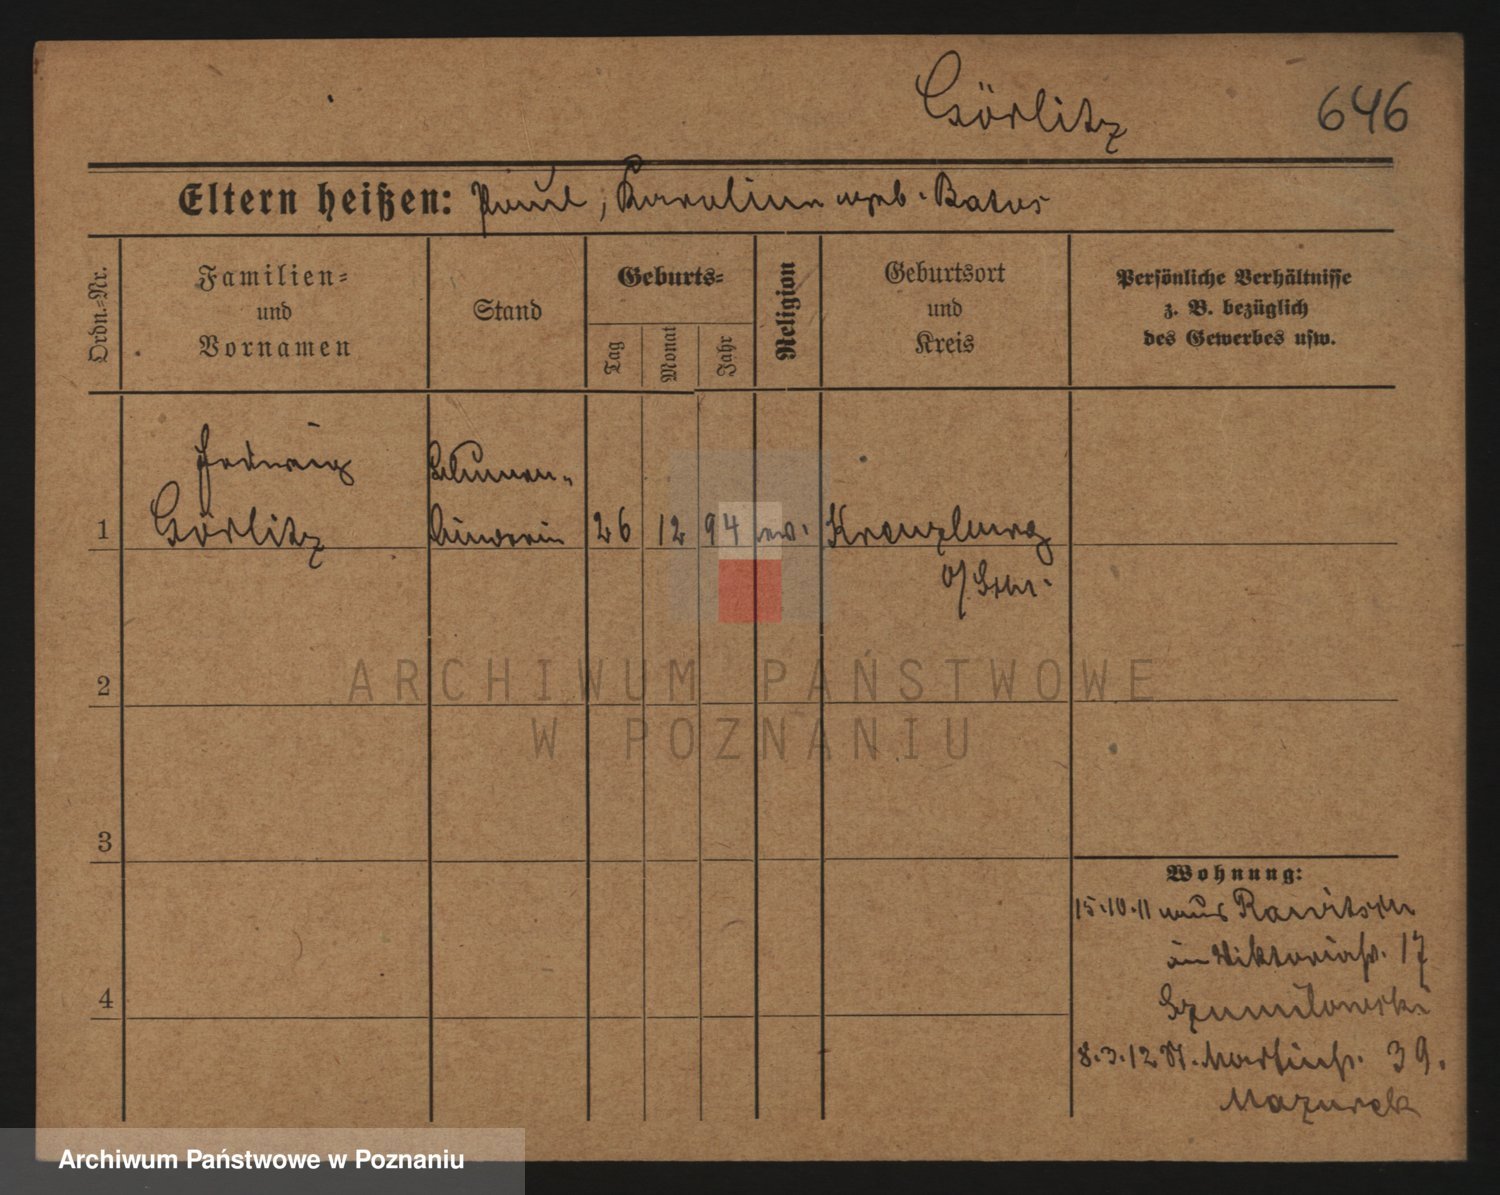 Görlitz 646
Eltern heißen: Paul, Karoline geb. Batos
Ordn.=Nr.
Familien=
und
Vornamen
Stand
Geburts=
Tag
Monat
Jahr
Religion
Geburtsort
und
Kreis
Persönliche Verhältnisse
z. B. bezüglich
des Gewerbes usw.
Hedwig
Görlitz
Blumen-
binderin
1
26 12 94 ev. Kreuzburg
o/Schl.
2
3
4
Wohnung:
15.10.11 aus Rawitsch
in Viktoriastr. 17
Szumilowski
8.3.12 St. Martinstr. 39.
Mazurek
ARCHIWUM PAŃSTWOWE
W POZNANIU
Archiwum Państwowe w Poznaniu